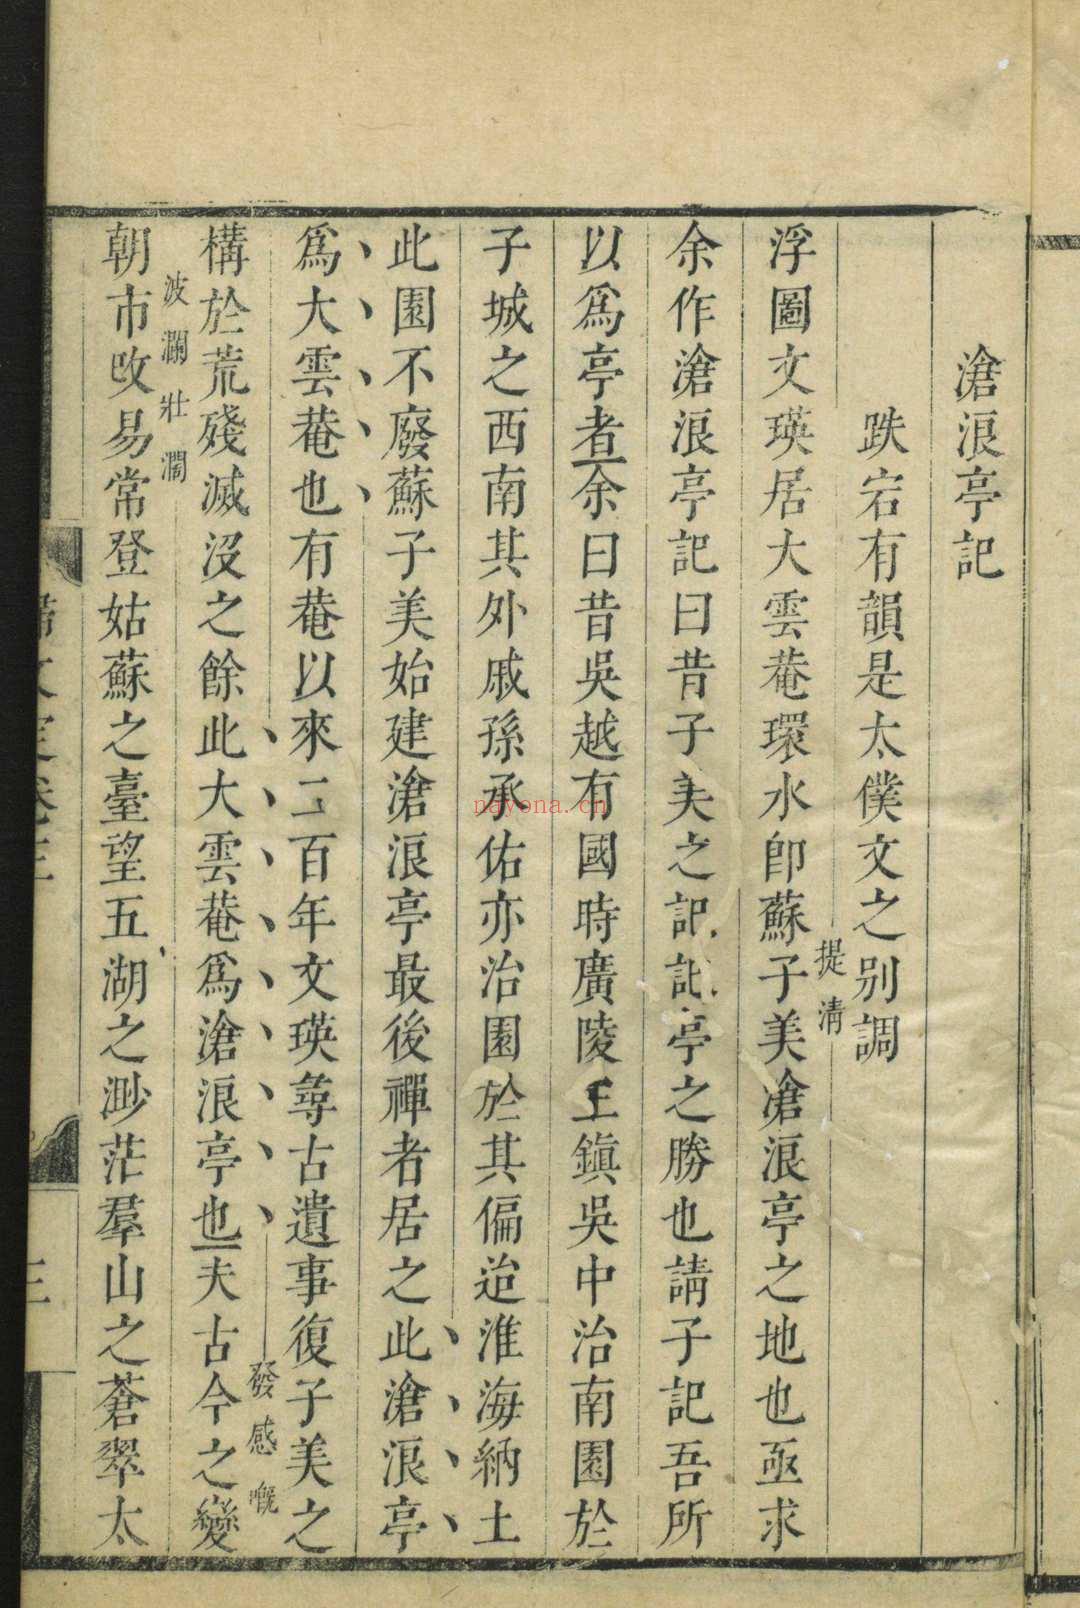 滄浪亭記
跌宕有韻是太僕文之别調
浮圖文瑛居大雲菴環水即蘇子美滄浪亭之地也亟求
提清
余作滄浪亭記曰昔子美之記記亭之勝也請子記吾所
以爲亭者余曰昔吳越有國時廣陵王鎮吳中治南園於
子城之西南其外戚孫承佑亦治園於其偏迨淮海納土
此園不廢蘇子美始建滄浪亭最後禪者居之此滄浪亭
爲大雲菴也有菴以來二百年文瑛尋古遺事復子美之
發感嘅
構於荒殘滅沒之餘此大雲菴爲滄浪亭也夫古今之變
波瀾壯濶
朝市改易常登姑蘇之臺望五湖之渺茫羣山之蒼翠太
三
nayona.cn